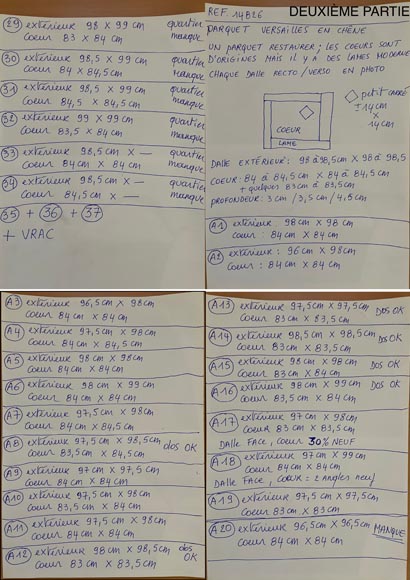 29 extérieur 98 X 99 cm quartier
Coeur 83 X 84 cm manque
30 extérieur 98,5 X 99 cm quartier
Coeur 84 X 84,5 cm manque
31 extérieur 98,5 X 99 cm quartier
Coeur 84 X 84,5 cm manque
32 extérieur 99 X 99 cm quartier
Coeur 83,5 X 84 cm manque
33 extérieur 98,5 cm X — quartier
Coeur 84 cm X 84 cm manque
34 extérieur 98,5 cm X — quartier
Coeur 84,5 cm X — manque
35 + 36 + 37
+ VRAC
DEUXIÈME PARTIE
REF. 14B26
PARQUET VERSAILLES EN CHÊNE
UN PARQUET RESTAURER ; LES COEURS SONT
D'ORIGINES MAIS IL Y A DES LAMES MODERNE
CHAQUE DALLE RECTO/VERSO EN PHOTO
petit carré
± 14 cm
X
14 cm
COEUR
LAME
DALLE EXTÉRIEURE : 98 à 98,5 cm X 98 à 98,5
COEUR : 84 à 84,5 cm X 84 à 84,5 cm
+ quelques 83 cm à 83,5 cm
PROFONDEUR : 3 cm / 3,5 cm / 4,5 cm
A1 extérieur 98 cm X 98 cm
Coeur : 84 cm X 84 cm
A2 extérieur : 96 cm X 98 cm
Coeur : 84 cm X 84 cm
A3 extérieur 96,5 cm X 98 cm
Coeur 84 cm X 84 cm
A4 extérieur 97,5 cm X 98 cm
Coeur 84 cm X 84,5 cm
A5 extérieur 98 cm X 98 cm
Coeur 84 cm X 84 cm
A6 extérieur 98 cm X 99 cm
Coeur 84 cm X 84 cm
A7 extérieur 97,5 cm X 98 cm
Coeur 84 cm X 84,5 cm
A8 extérieur 97,5 cm X 98,5 cm dos OK
Coeur 83,5 cm X 84,5 cm
A9 extérieur 97 cm X 97,5 cm
Coeur 84 cm X 84 cm
A10 extérieur 97,5 cm X 98 cm
Coeur 83,5 cm X 84 cm
A11 extérieur 97,5 cm X 98 cm
Coeur 84 cm X 84 cm
A12 extérieur 98 cm X 98,5 cm dos OK
Coeur 83 cm X 83,5 cm
A13 extérieur 97,5 cm X 97,5 cm dos OK
Coeur 83 cm X 83,5 cm
A14 extérieur 98,5 cm X 98,5 cm dos OK
Coeur 83 cm X 83,5 cm
A15 extérieur 98 cm X 98 cm dos OK
Coeur 83 cm X 84 cm
A16 extérieur 98 cm X 99 cm dos OK
Coeur 83,5 cm X 84 cm
A17 extérieur 97 cm X 98 cm
Coeur 83 cm X 83,5 cm
Dalle FACE, Coeur 30% NEUF
A18 extérieur 97 cm X 99 cm
Coeur 84 cm X 84 cm
Dalle FACE, coeur : 2 angles neuf
A19 extérieur 97,5 cm X 97,5 cm
Coeur 83 cm X 83 cm
A20 extérieur 96,5 cm X 96,5 cm MANQUE
Coeur 84 cm X 84 cm